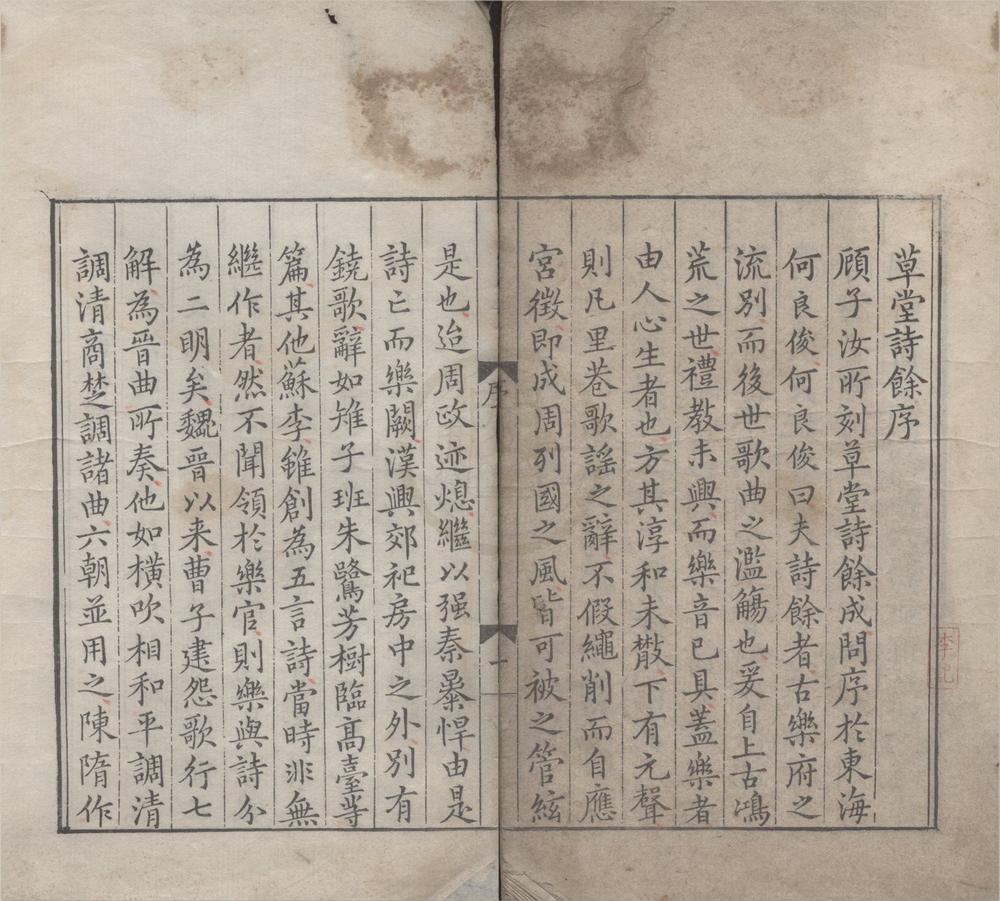 草堂詩餘序
顧子汝所刻草堂詩餘成問序於東海
何良俊何良俊曰夫詩餘者古樂府之
流別而後世歌曲之濫觴也爰自上古鴻
荒之世禮教未興而樂音已具蓋樂者
由人心生者也方其淳和未散下有元聲
則凡里巷歌謠之辭不假繩削而自應
宮徵即成周列國之風皆可被之管絃
序
一
是也迨周政迹熄繼以强秦暴悍由是
詩亡而樂闕漢興郊祀房中之外别有
鐃歌辭如雉子班朱鷺芳樹臨高臺等
篇其他蘇李雖創為五言詩當時非無
繼作者然不聞領於樂官則樂與詩分
為二明矣魏晉以来曹子建怨歌行七
解為晉曲所奏他如橫吹相和平調清
調清商楚調諸曲六朝並用之陳隋作